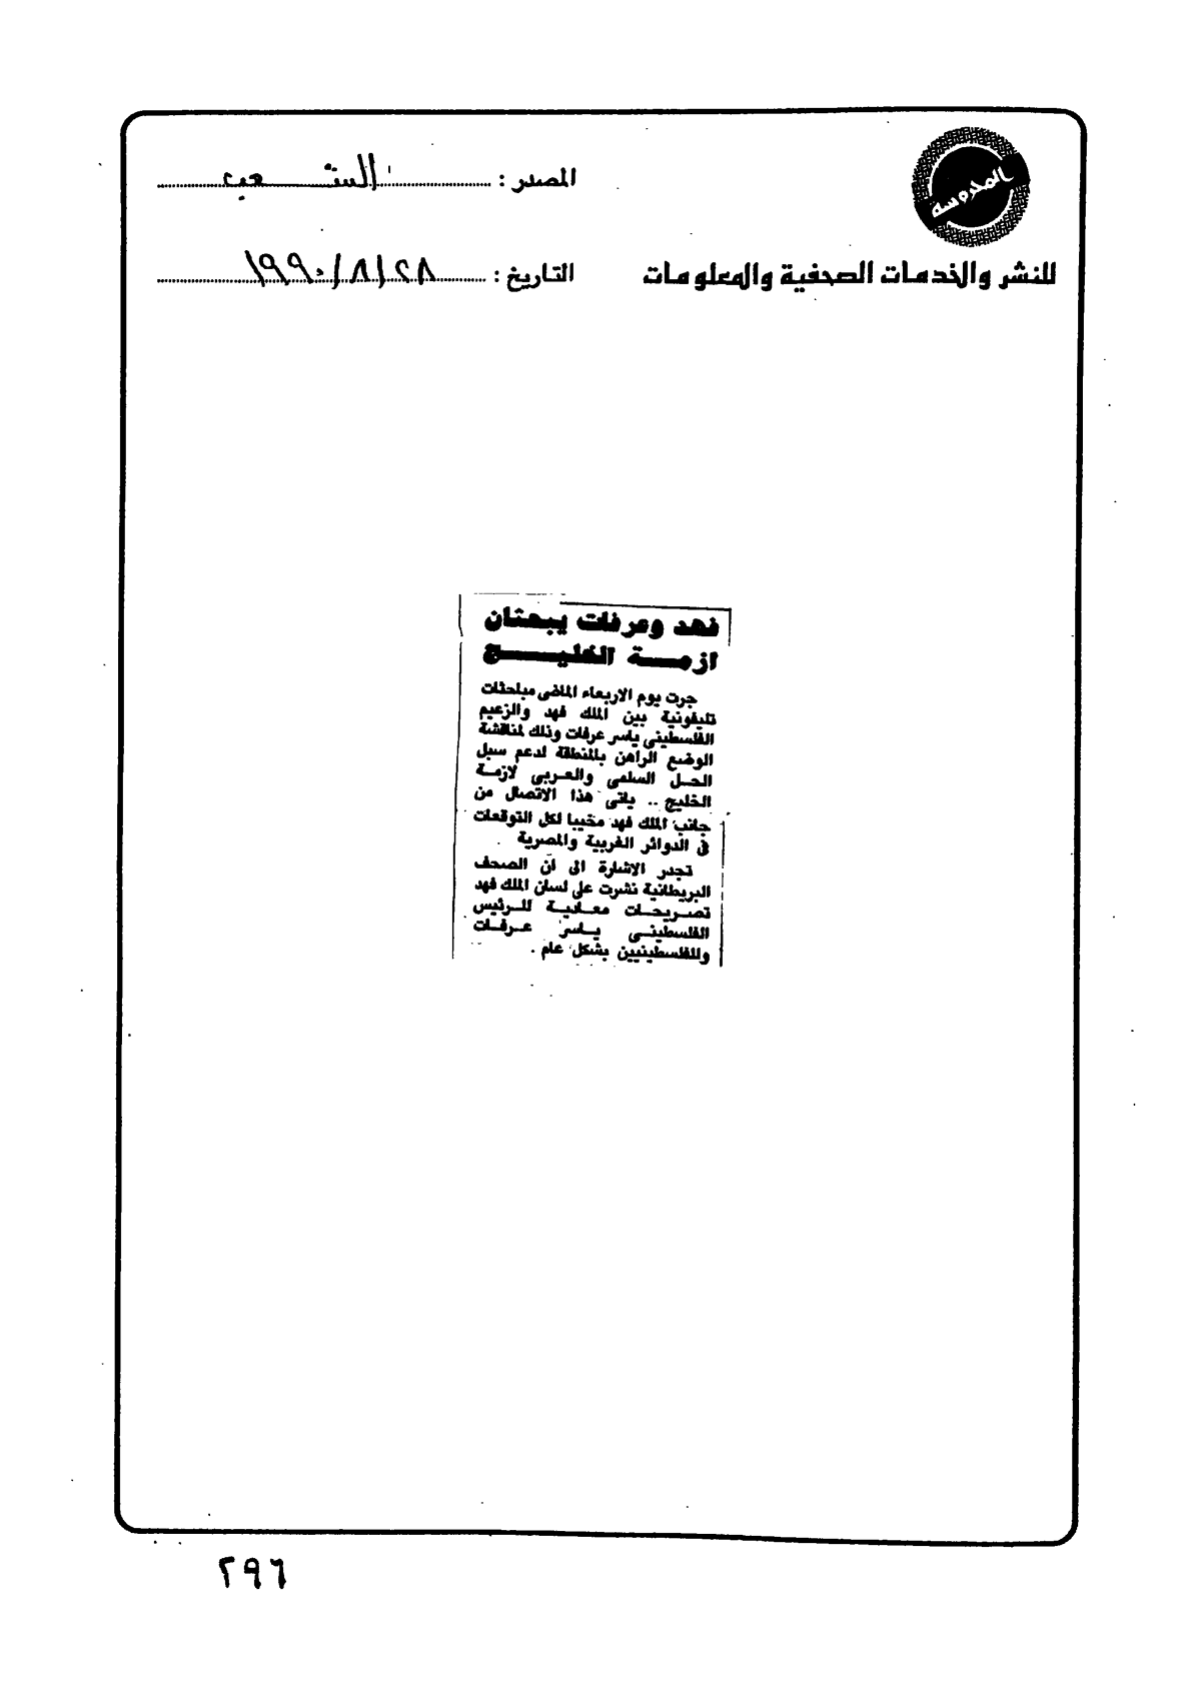 المحروسة
للنشر والخدمات الصحفية والمعلومات
المصدر : الشعب
التاريخ : ٢٨ / ٨ / ١٩٩٠
فهد وعرفات يبحثان
ازمـة الخليـج
جرت يوم الاربعاء الماضى مباحثات
تليفونية بين الملك فهد والزعيم
الفلسطينى ياسر عرفات وذلك لمناقشة
الوضع الراهن بالمنطقة لدعم سبل
الحـل السلمى والعـربى لازمـة
الخليج .. ياتى هذا الاتصال من
جانب الملك فهد مخيبا لكل التوقعات
فى الدوائر الغربية والمصرية .
تجدر الاشارة الى ان الصحف
البريطانية نشرت على لسان الملك فهد
تصـريحـات معـاديـة للـرئيس
الفلسطينـى يـاسر عـرفـات
وللفلسطينيين بشكل عام .
٢٩٦